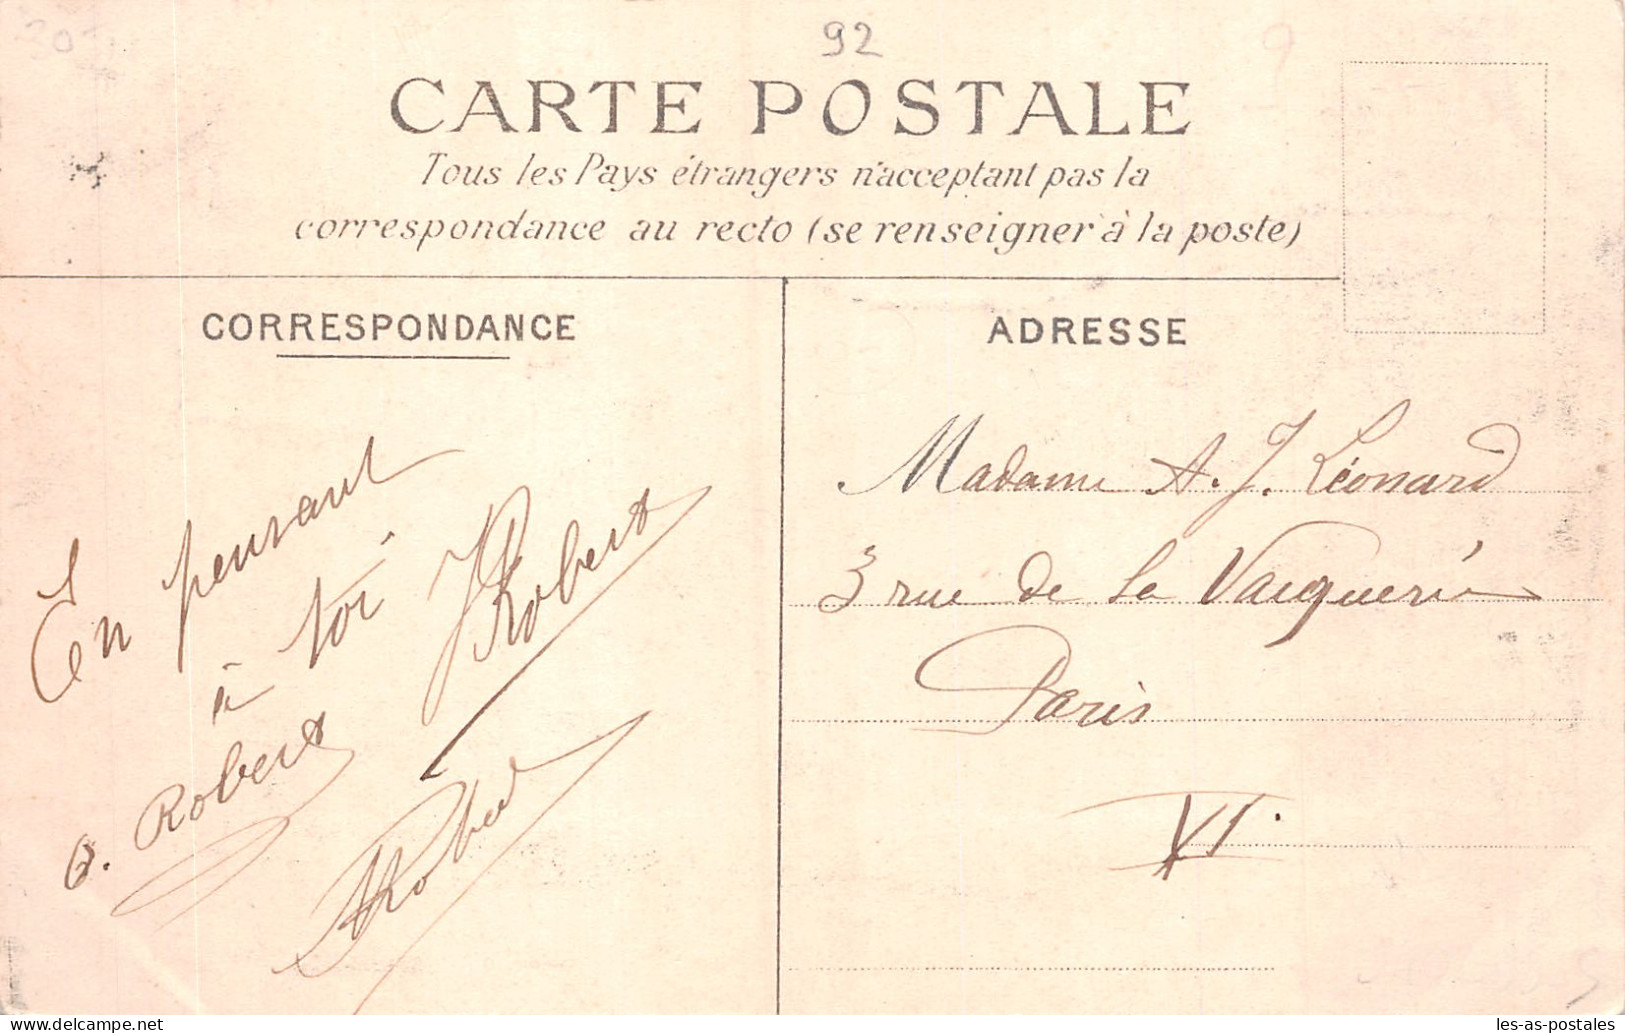 92
CARTE POSTALE
Tous les Pays étrangers n'acceptant pas la
correspondance au recto (se renseigner à la poste)
CORRESPONDANCE
ADRESSE
En pensant
à toi.
Robert
Robert
Robert
Madame A. J. Léonard
3 rue de la
Paris
VI.
les-as-postales.com